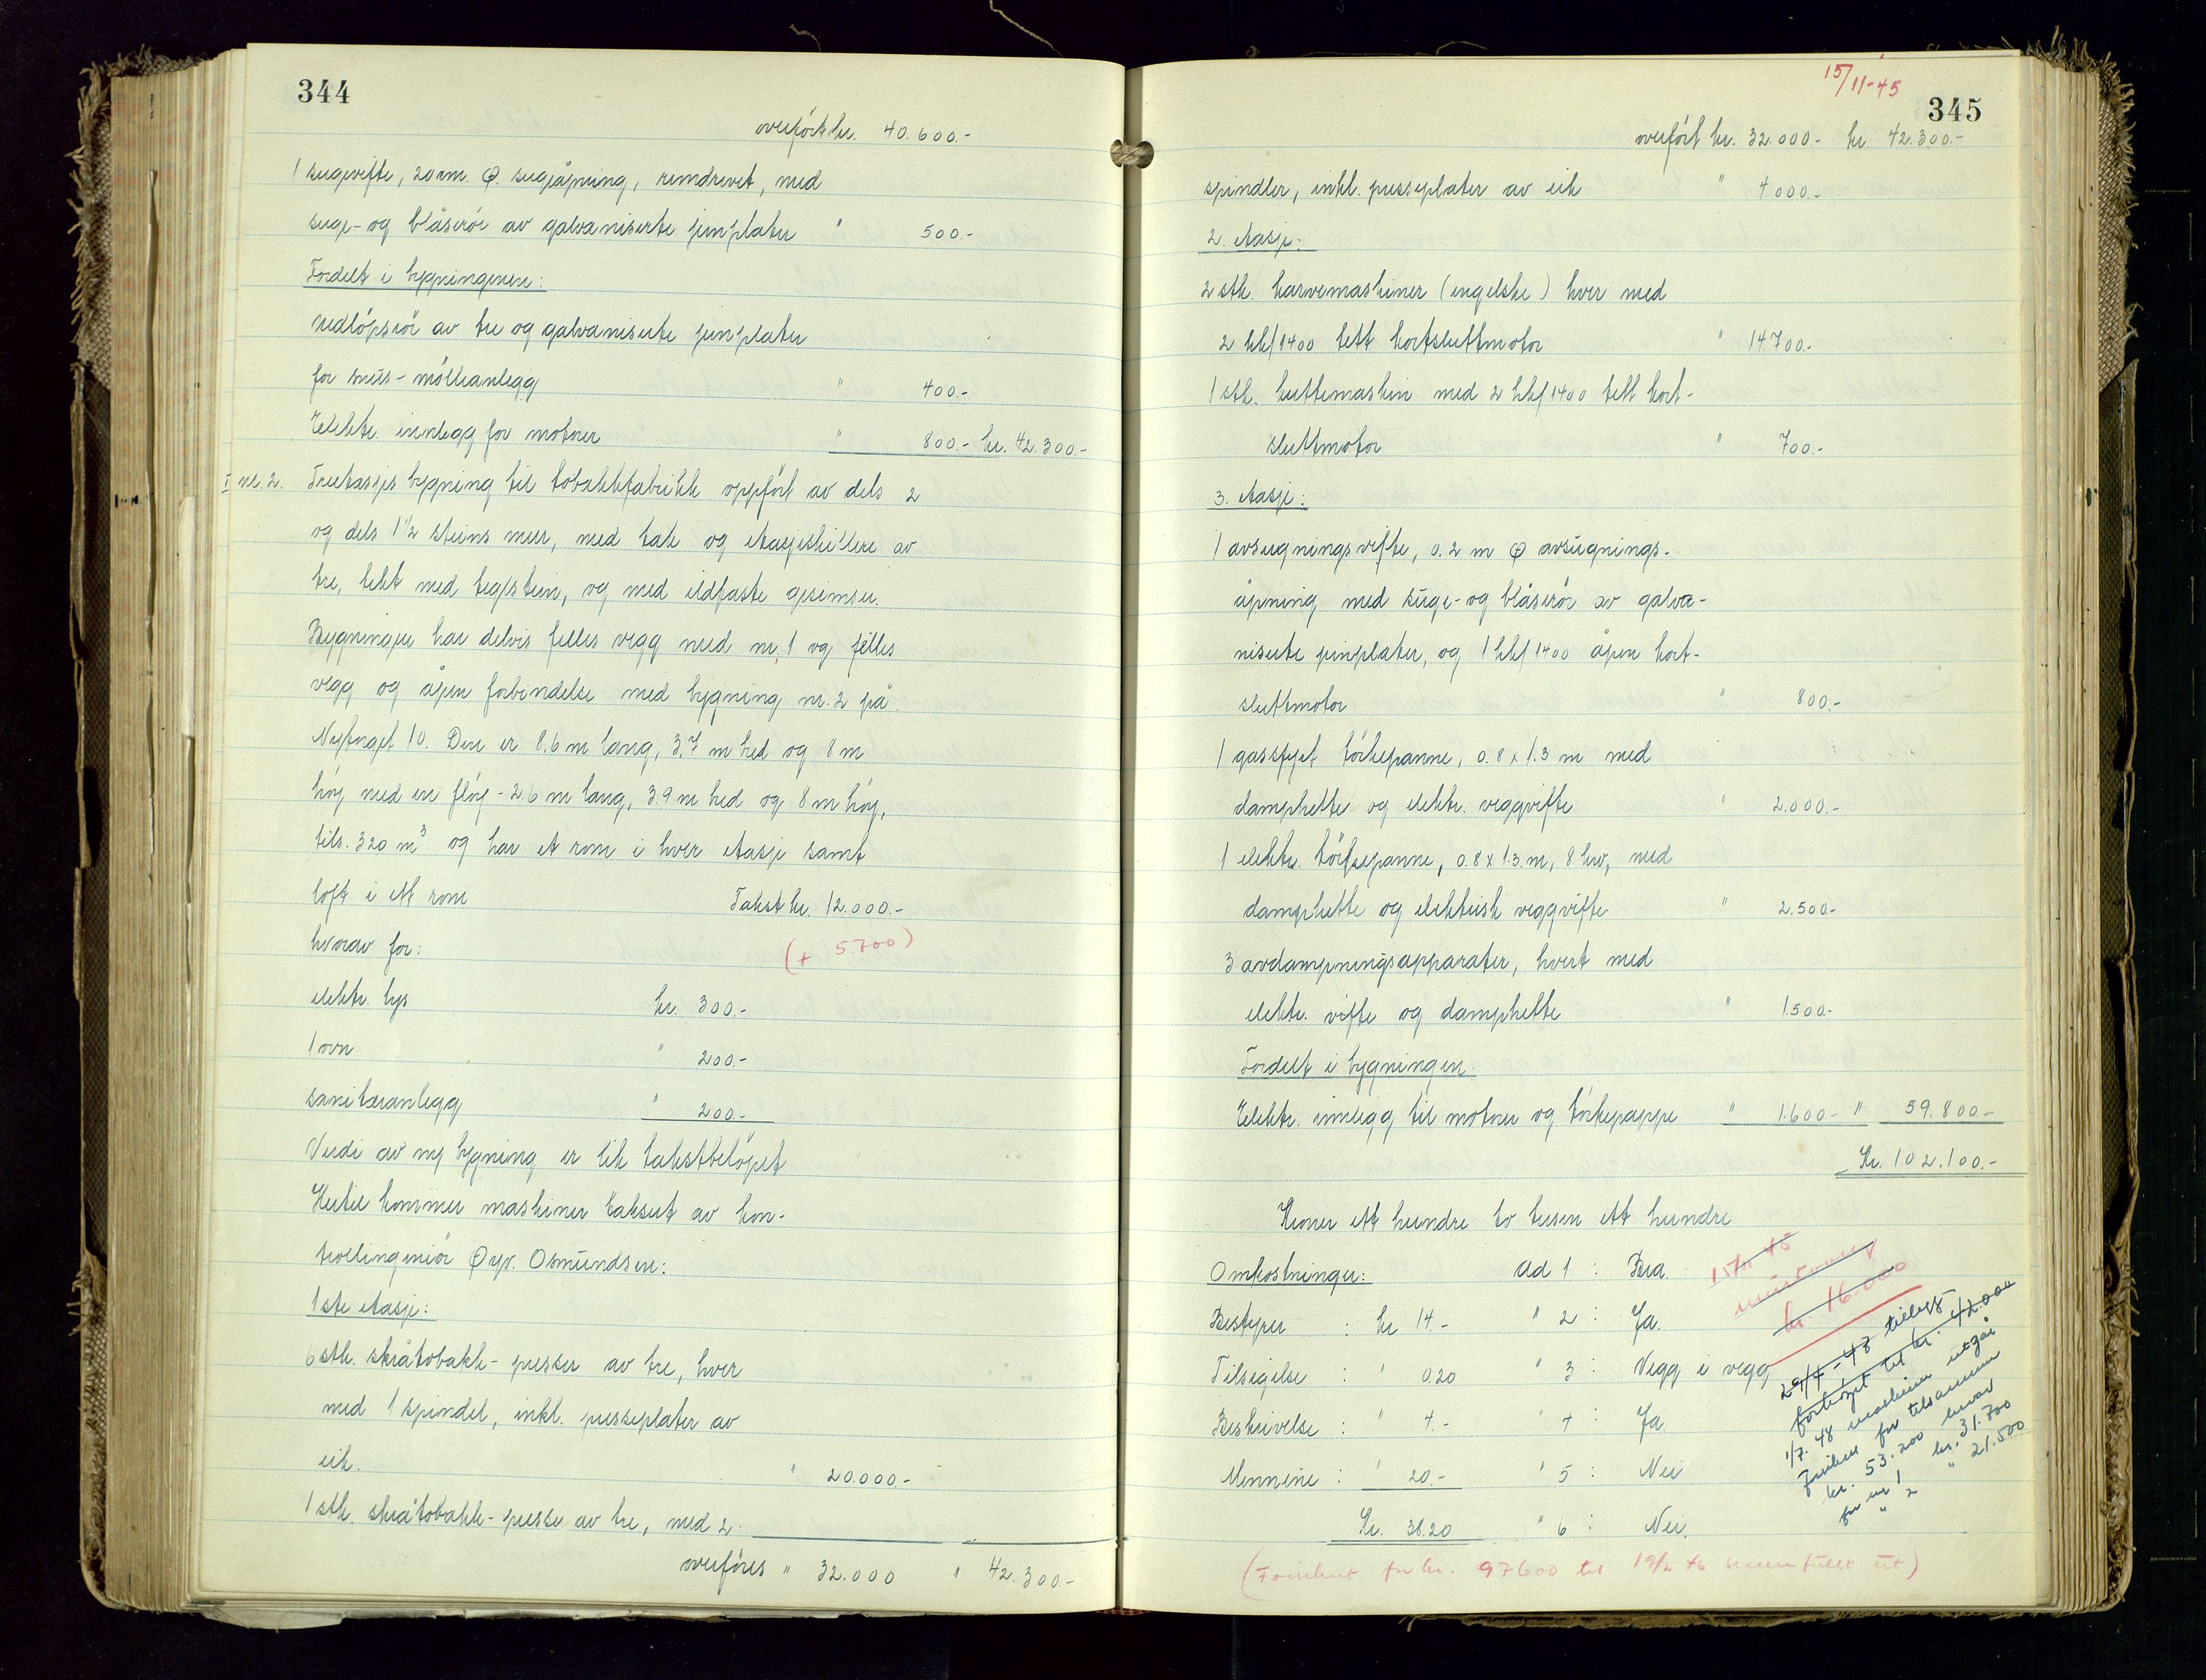 344
overført kr. 40.600.-
1 sugevifte, 20 cm. Ø. sugeåpning, remdrevet, med
suge- og blåserör av galvaniserte jernplater " 500.-
Fordelt i bygningene:
nedlöpsrör av tre og galvaniserte jernplater
for snus-mölleanlegg " 400.-
Elektr. innlegg for motorer " 800.- kr. 42.300.-
I nr. 2. Treetasjes bygning til tobakkfabrikk oppfört av dels 2
og dels 1 1/2 steins mur, med tak og etasjeskillere av
tre, tekt med teglstein, og med ildfaste gesimser.
Bygningen har delvis felles vegg med nr. 1 og felles
vegg og åpen forbindelse med bygning nr. 2 på
Nytorget 10. Den er 8.6 m lang, 3.7 m bred og 8 m
höy med en flöy - 2.6 m lang, 3.9 m bred og 8 m höy,
tils. 320 m³ og har et rom i hver etasje samt
loft i ett rom Takst kr. 12.000.-
hvorav for: (+ 5.700)
elektr. lys kr. 300.-
1 ovn " 200.-
sanitæranlegg " 200.-
Verdi av ny bygning er lik takstbelöpet
Hertil kommer maskiner taksert av kon-
trollingeniör Osmundsen:
1ste etasje:
6 stk. skråtobakk-presser av tre, hver
med 1 spindel, inkl. presseplater av
eik. " 20.000.-
1 stk. skråtobakk-presse av tre, med 2
overföres " 32.000 " 42.300.-
15/11-45
345
overfört kr. 32.000.- kr. 42.300.-
spindler, inkl. presseplater av eik " 4.000.-
2. etasje:
2 stk. karvemaskiner (engelske) hver med
2 hk/1400 tett kortsluttmotor " 14.700.-
1 stk. kuttemaskin med 2 hk/1400 tett kort-
sluttmotor " 700.-
3. etasje:
1 avsugningsvifte, 0.2 m Ø avsugnings-
åpning med suge- og blåserör av galva-
niserte jernplater, og 1 hk/1400 åpen kort-
sluttmotor " 800.-
1 gassfyrt törkepanne, 0.8 x 1.3 m med
damphette og elektr. veggvifte " 2.000.-
1 elektr. törkepanne, 0.8 x 1.3 m, 8 kw, med
damphette og elektrisk veggvifte " 2.500.-
3 avdampningsapparater, hvert med
elektr. vifte og damphette " 1.500.-
Fordelt i bygningen.
Elektr. innlegg til motorer og törkepanne " 1.600.- " 59.800.-
Kr. 102.100.-
Kroner ett hundre to tusen ett hundre
Omkostninger: Ad 1 : Bra.
Bestyrer : kr 14.- " 2 : Ja.
Tilsigelse : " 0.20 " 3 : Vegg i vegg
Beskrivelse : " 4.- " 4 : Ja.
Mennene : " 20.- " 5 : Nei
Kr. 38.20 " 6 : Nei.
15/11 45
kr. 16.000
29/4-48 tillegg
forhöyet til kr. 42.000
1/7.48 maskiner utgår
for tilsammen
kr. 53.200 hvorav
for nr 1 kr. 31.700
" 2 " 21.500
(Forsikret for kr. 97600 til 19/2 46)